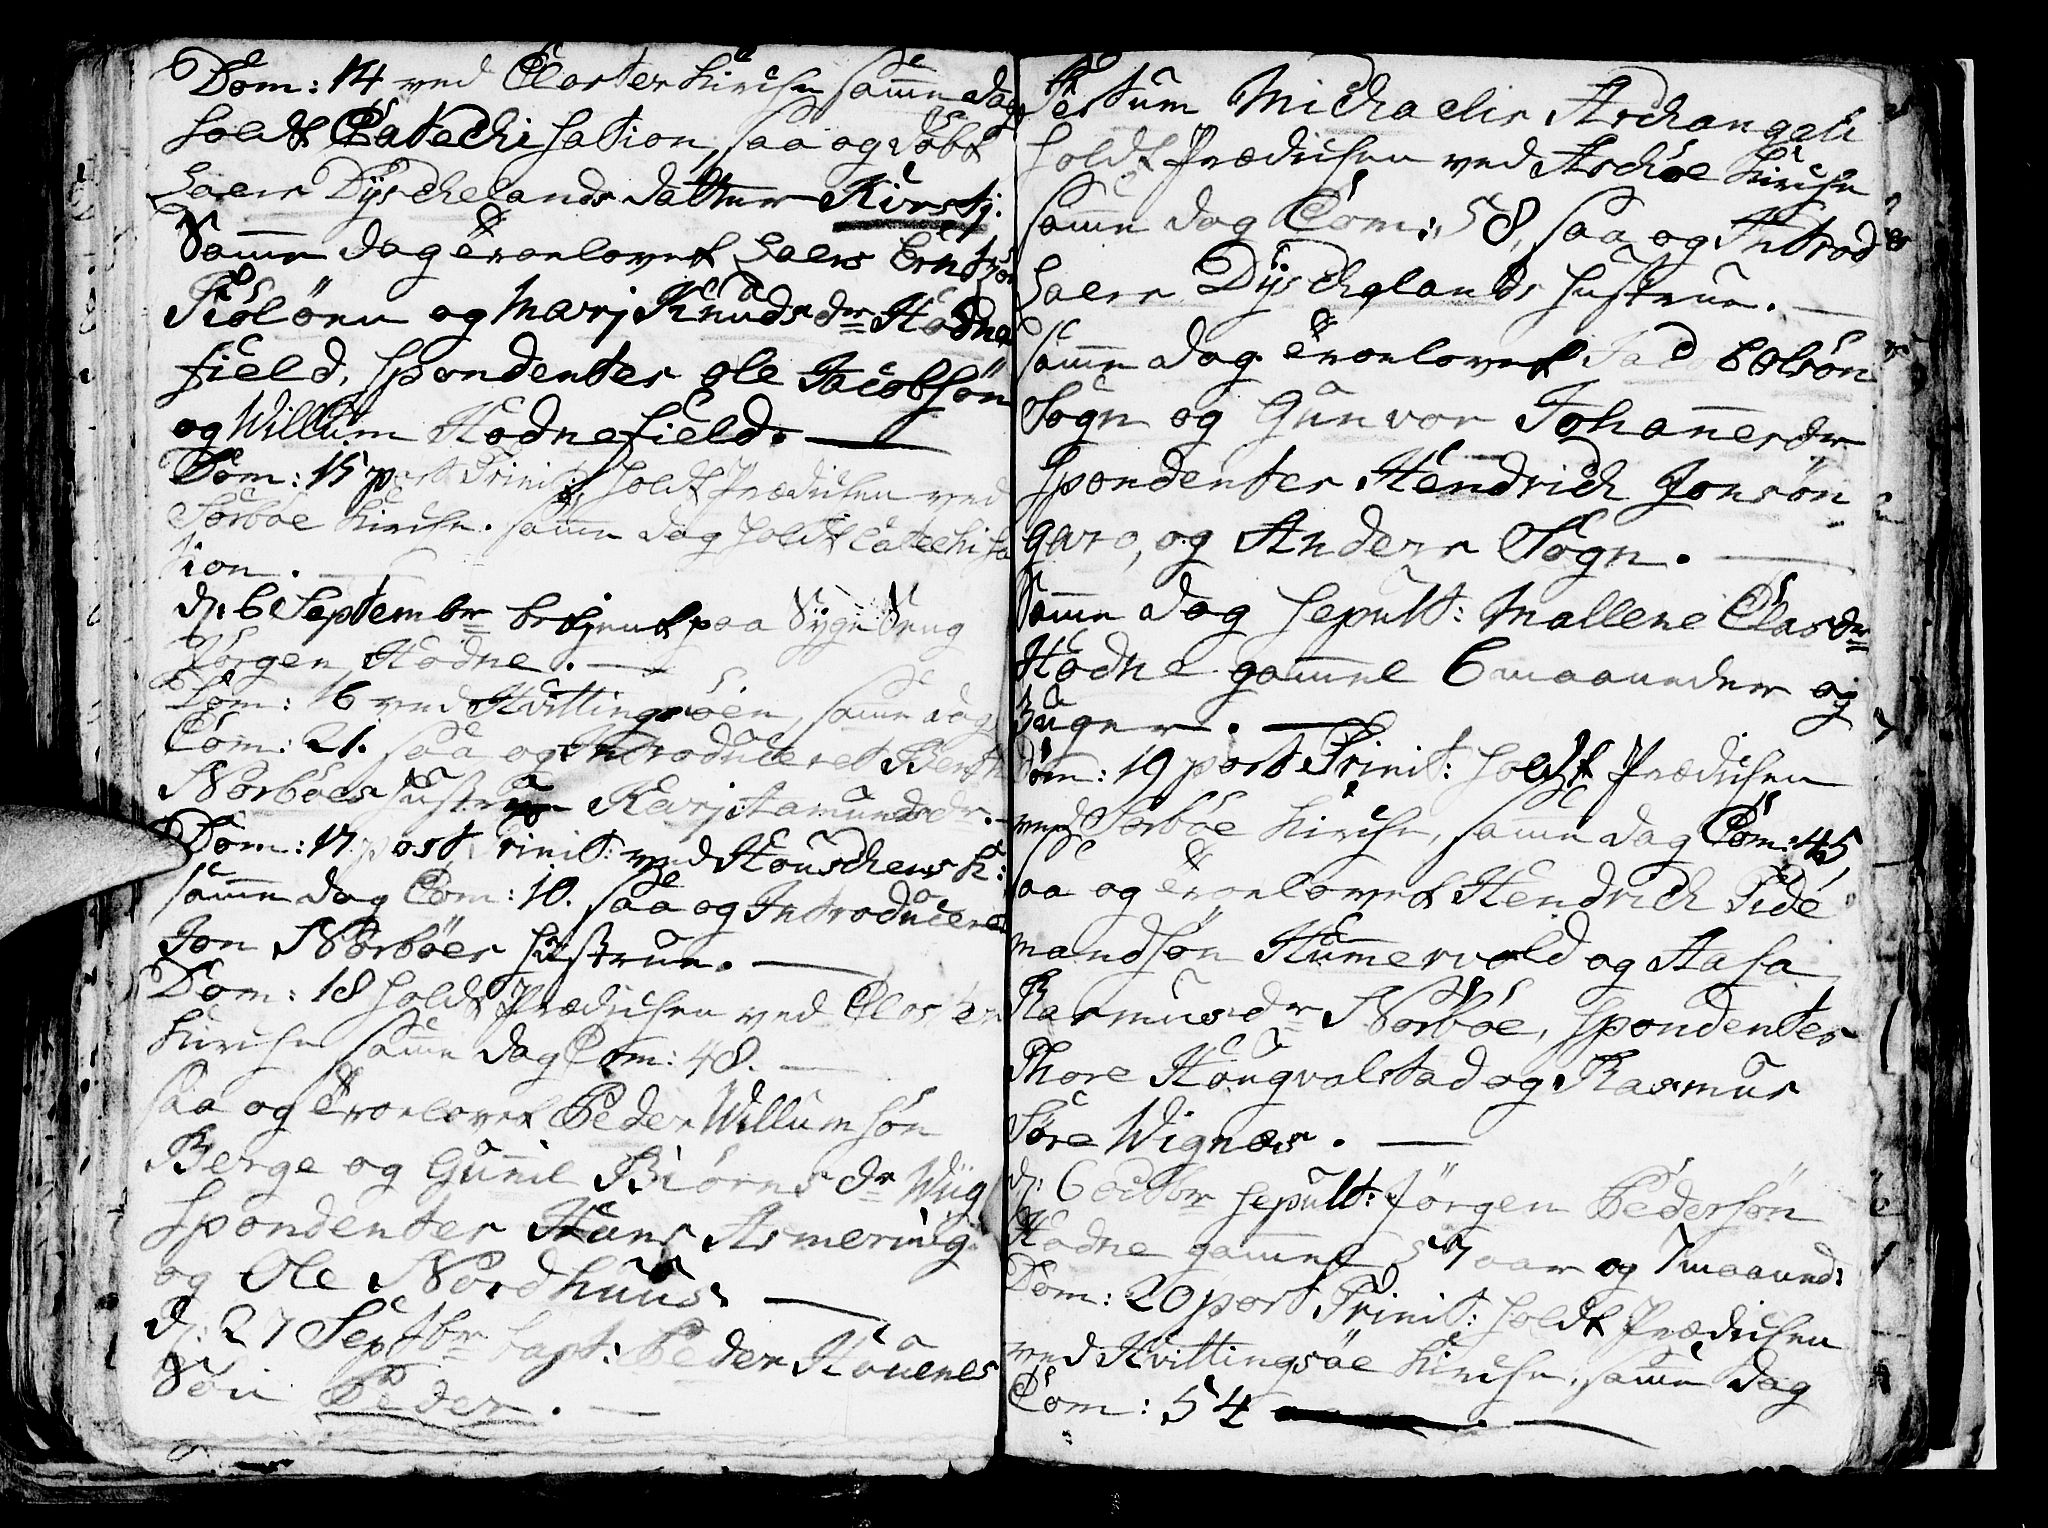 Dom: 14 ved Closter Kirche samme dag
holdt Catechisation, saa og döbt
Laers Dÿschelands datter Kirstj.
Samme dag Troelovet Laers Erichsön
Fiölöen og Marj Knuds dr Hodne
field, Spondentes Ole Jacobsön
og Willum Hodnefield.
Dom: 15 post Trinit: holdt Prædichen ved
Sörböe Kirche. samme dag holdt Catechisa
tion.
d: 6 Septembr betjent paa Syge Seng
Jörgen Hodne.
Dom: 16 ved Hvittingsöen, samme dag
Com: 21. saa og Introduceret Bent
Norböes hustrue Karj Aamunds dr.
Dom: 17 post Trinit: ved Houschens K:
samme dag Com: 10. saa og Introduceret
Jon Norböes hustrue.
Dom: 18 holdt Prædichen ved Closter
Kirche samme dag Com: 48.
saa og Troelovet Peder Willumsön
Berge og Gunnil Biörns dr Wiig
Spondentes Hans Asmervig
og Ole Nordhuus.
d: 27 Septbr bapt: Peder Houenes
Sön Peder.
Festum Michaelis Archangeli
holdt Prædichen ved Aschöe Kirche
samme dag Com: 58, saa og Introd
Laers Dÿschelands hustrue.
samme dag Troelovet Jacob Olsön
Sogn og Gunvor Johannesdr
Spondentes Hendrich Jonsön
Garo, og Anders Sogn.
Samme dag sepult: Mallene Clasdr
Hodne gammel 6 maaneder og
3 uger.
Dom: 19 post Trinit: holdt Prædichen
ved Sörböe Kirche, samme dag Com: 45
saa og Troelovet Hendrich Tide
mandsön Hummervold og Aasa
Rasmusdr Norböe, Spondentes
Thore Hougvalstad og Rasmus
Töre Wignæs.
d: 6 octbr sepult: Jörgen Pedersön
Hodne gammel 57 aar og 7 maaned:
Dom: 20 post Trinit: holdt Prædichen
ved Hvittingsöe Kirche, samme dag
Com: 54